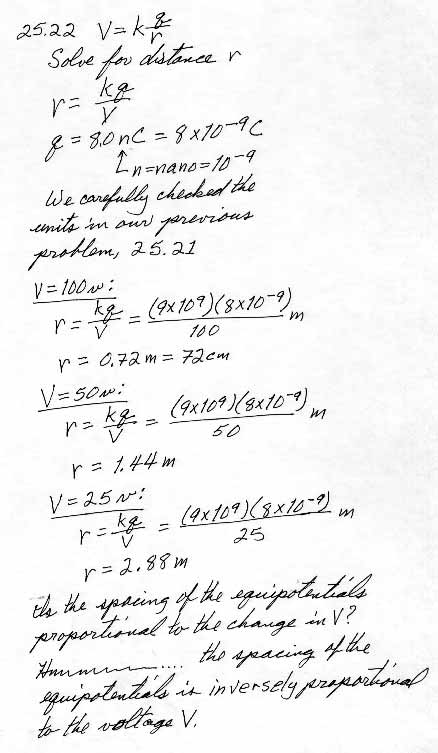 25.22 V = k q/r
Solve for distance r
r = kq/V
q = 8.0 nC = 8 x 10^-9 C
↑ n = nano = 10^-9
We carefully checked the
units in our previous
problem, 25.21
V = 100 v:
r = kq/V = (9x10^9)(8x10^-9)/100 m
r = 0.72 m = 72 cm
V = 50 v:
r = kq/V = (9x10^9)(8x10^-9)/50 m
r = 1.44 m
V = 25 v:
r = kq/V = (9x10^9)(8x10^-9)/25 m
r = 2.88 m
Is the spacing of the equipotentials
proportional to the change in V?
Hmmmm.... the spacing of the
equipotentials is inversely proportional
to the voltage V.